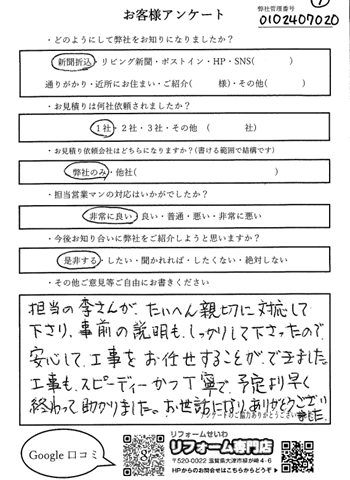 ①
お客様アンケート
弊社管理番号
0102407020
・どのようにして弊社をお知りになりましたか？
新聞折込・リビング新聞・ポストイン・HP・SNS(　　　)
通りがかり・近所にお住まい・ご紹介(　　　様)・その他(　　　)
・お見積りは何社依頼されましたか？
1社・2社・3社・その他 (　　　社)
・お見積り依頼会社はどちらになりますか？(書ける範囲で結構です)
弊社のみ・他社(　　　)
・担当営業マンの対応はいかがでしたか？
非常に良い・良い・普通・悪い・非常に悪い
・今後お知り合いに弊社をご紹介しようと思いますか？
是非する・したい・聞かれれば・したくない・絶対しない
・その他ご意見等ご自由にお書きください
担当の李さんが、たいへん親切に対応して
下さり、事前の説明も、しっかりして下さったので、
安心して、工事をお任せすることが、できました。
工事も、スピーディーかつ丁寧で、予定より早く
終わって助かりました。お世話になり、ありがとうござい
ました。
アンケートのご協力ありがとうござい
Google 口コミ
リフォームせいわ
リフォーム専門店
〒520-0022 滋賀県大津市柳が崎4-6
HPからのお問合せはこちらからどうぞ